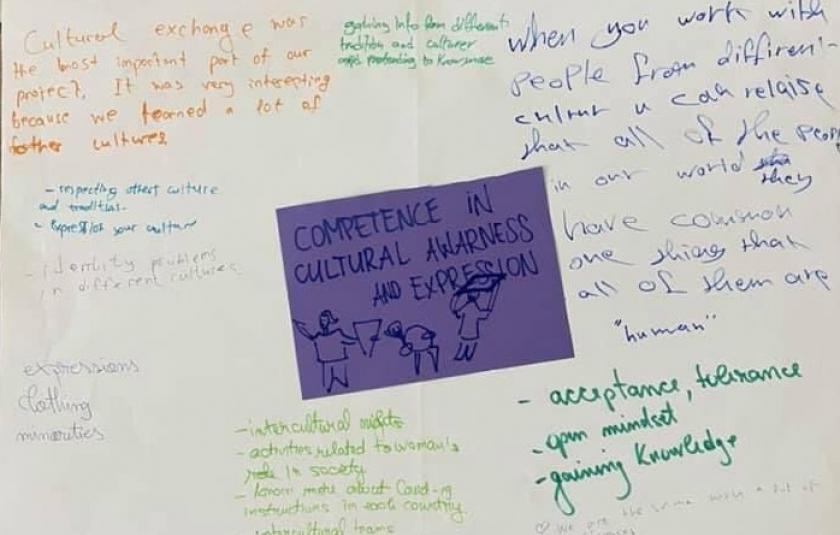 Cultural exchange was
the most important part of our
project, It was very interesting
because we learned a lot of
other cultures
gaining info from different
tradition and culturer
and
to know
when you work with
people from different
culture u can relaise
that all of the peop
in our world they
have common
one thing that
all of them are
"human"
- respecting others culture
and tradition.
- Expression your culture
- identity problems
in different cultures
COMPETENCE IN
CULTURAL AWARNESS
AND EXPRESSION
expressions
clothing
minorities
- intercultural nights
- activities related to woman's
role in society
- known more about Covid-19
instructions in each country
- intercultural teams
- acceptance, tolerance
- open mindset
- gaining knowledge
♡ We are the same with a lot of